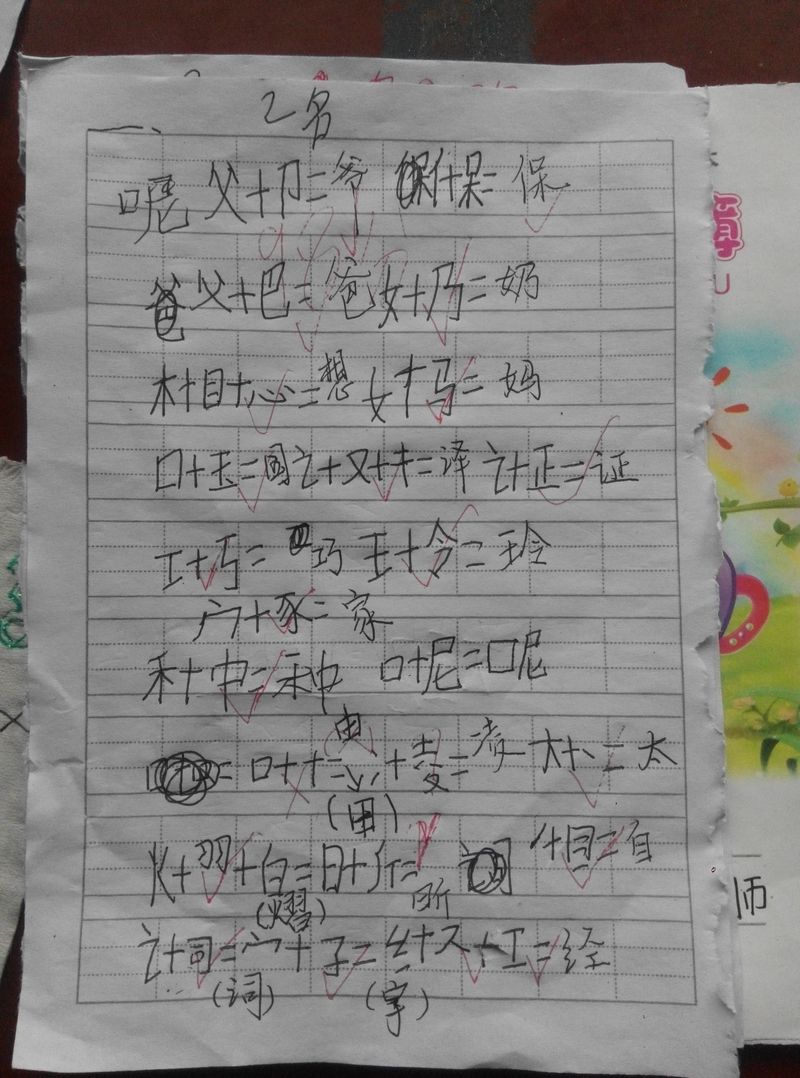 2名
一、
呢 父+卩=爷 亻+呆=保
爸 父+巴=爸 女+乃=奶
木+目+心=想 女+马=妈
口+玉=国 讠+又+キ=译 讠+正=证
工+丂=巧 王+令=玲
宀+豕=家
禾+中=种 口+尼=呢
=口+十=由
(田)
大+丶=太
火+羽+白=(熠) 日+斤=昕 亻+目=自
讠+司=(词) 宀+子=(字) 纟+ス+工=经
师